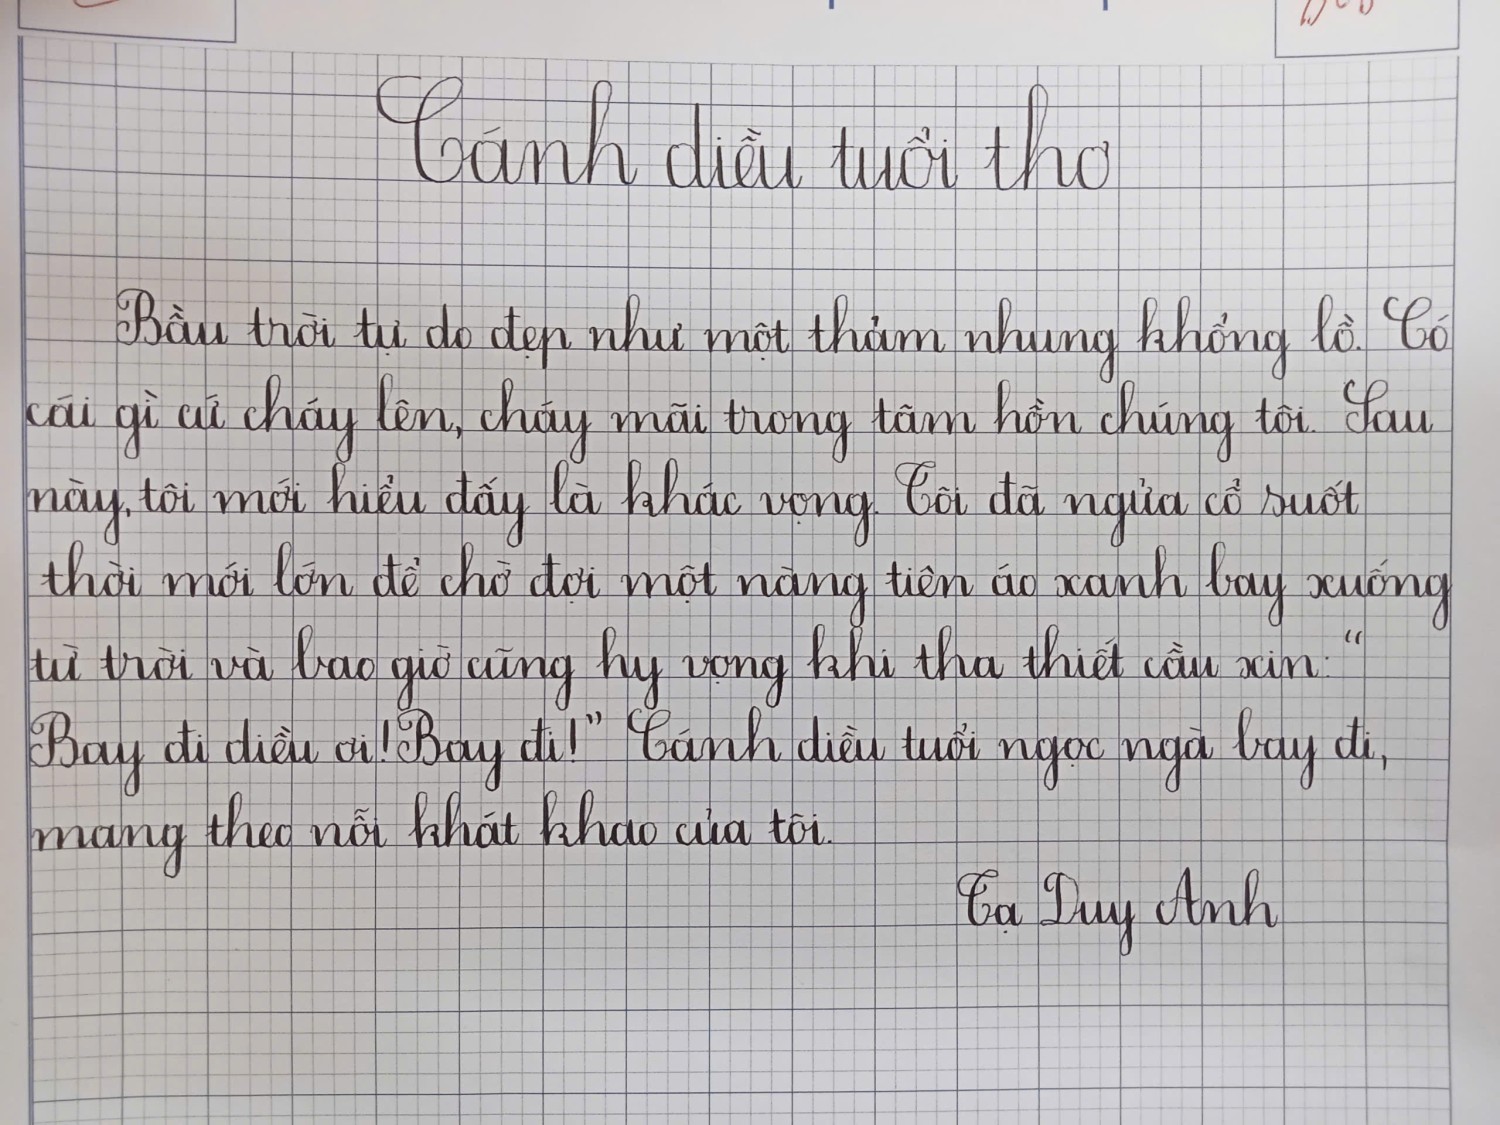 Cánh diều tuổi thơ
Bầu trời tự do đẹp như một thảm nhung khổng lồ. Có
cái gì cứ cháy lên, cháy mãi trong tâm hồn chúng tôi. Sau
này, tôi mới hiểu đấy là khác vọng. Tôi đã ngửa cổ suốt
thời mới lớn để chờ đợi một nàng tiên áo xanh bay xuống
từ trời và bao giờ cũng hy vọng khi tha thiết cầu xin: "
Bay đi diều ơi! Bay đi!" Cánh diều tuổi ngọc ngà bay đi,
mang theo nỗi khát khao của tôi.
Tạ Duy Anh